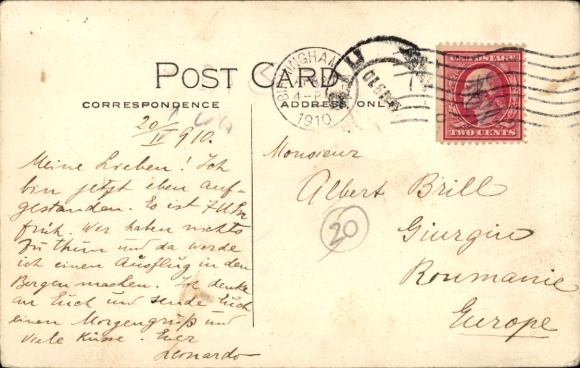 POST CARD
CORRESPONDENCE
ADDRESS ONLY
1910
U.S. POSTAGE
TWO CENTS
20/IV 910.
Meine Lieben! Ich
bin jetzt eben auf-
gestanden. Es ist 7 Uhr
früh. Wir haben nichts
zu thun und da werde
ich einen Ausflug in den
Bergen machen. Ich denke
an Euch und sende Euch
einen Morgengruß und
viele Küsse. Euer
Leonardo
Monsieur
Albert Brill
Giurgiu
Roumanie
Europe
20